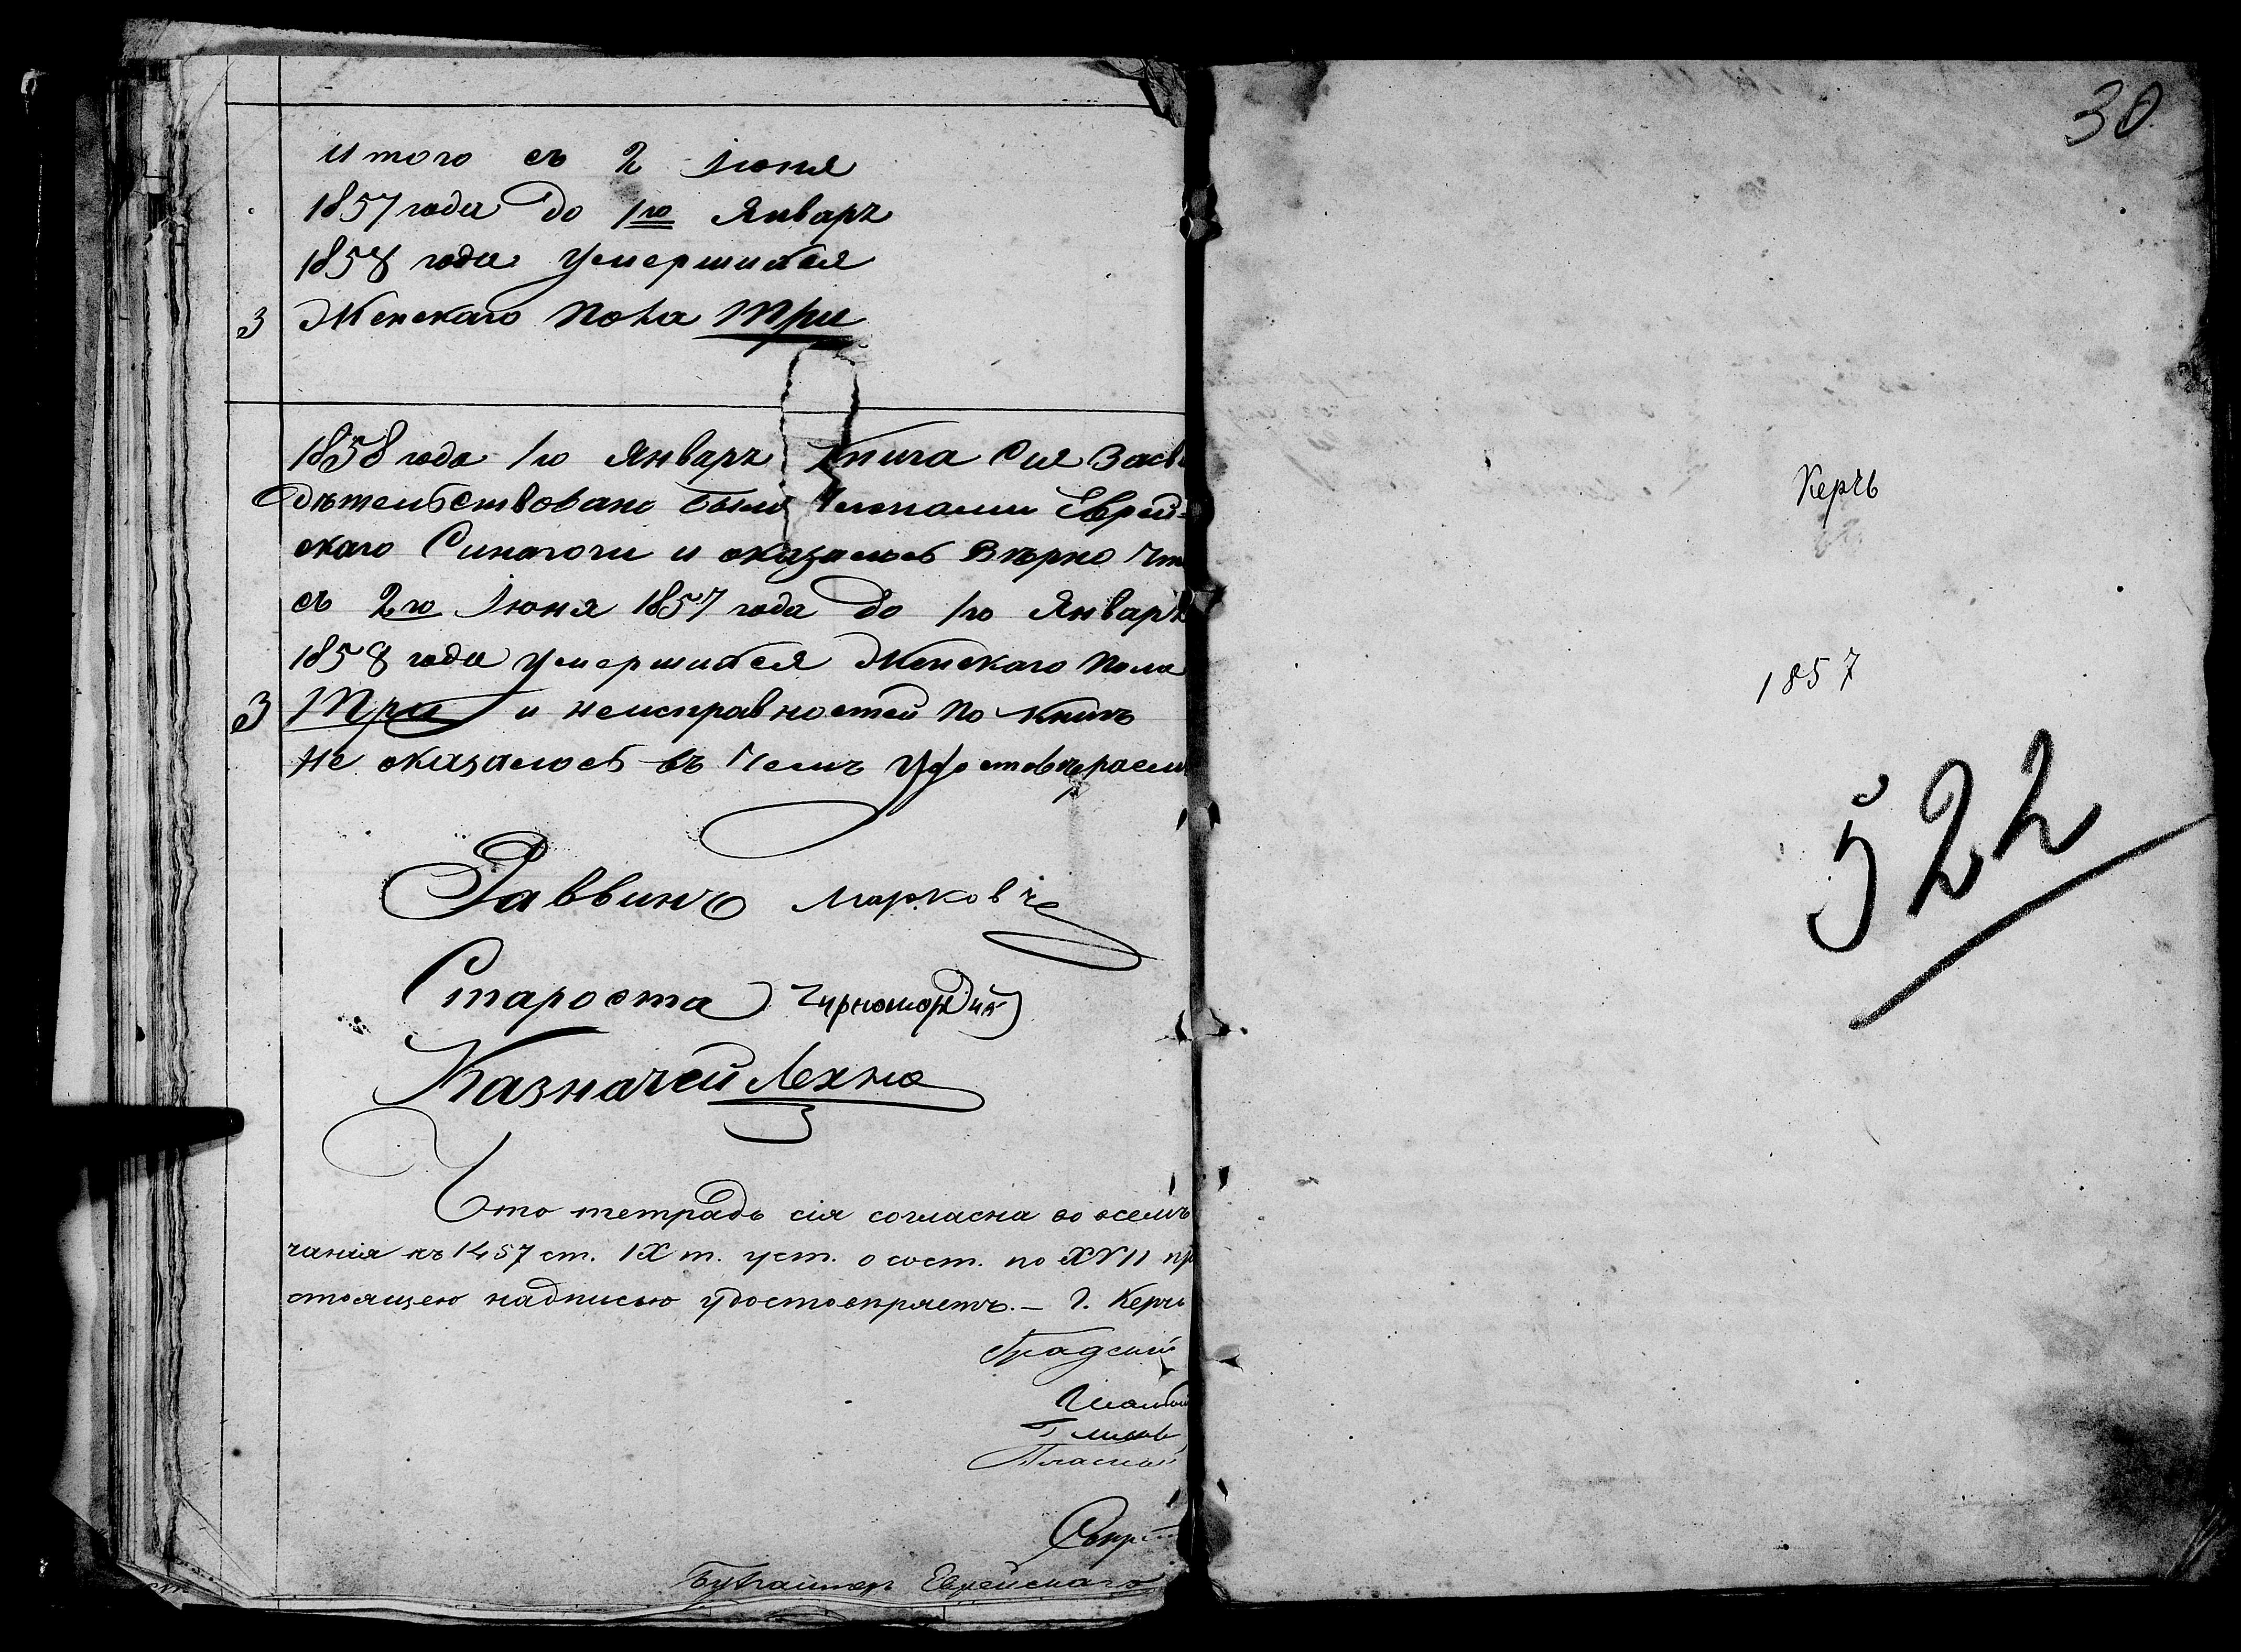 Итого съ 2 Іюня
1857 года до 1го Январъ
1858 года умершихся
3 Женскаго пола три
1858 года 1го Январъ Книга Сія засви
дѣтельствовано было Членами Еврей-
скаго Синагоги и оказалось Вѣрно Что
съ 2го Іюня 1857 года до 1го Январъ
1858 года умершихся Женскаго пола
3 Три и неисправностей по книгѣ
не оказалось въ Чемъ Удостовѣряемъ
Раввинъ Марковъ
Староста
Казначей Лехно
Что тетрадь сія согласна во всемъ
чанія къ 1457 ст. IX т. уст. о сост. по XVII пр
стоящею надписью удостовѣряетъ. — Г. Керчь
Градской
Гласный
Секрет
Бухгалтеръ Еврейскаго
30
Керчь
1857
522